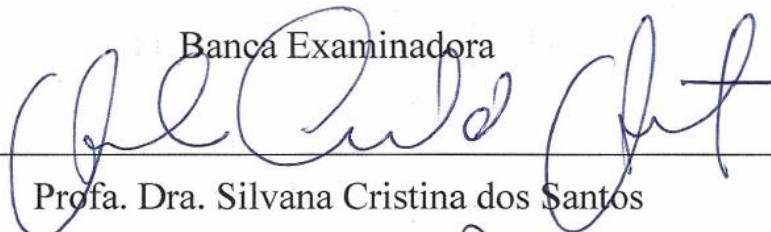 Banca Examinadora
Profa. Dra. Silvana Cristina dos Santos